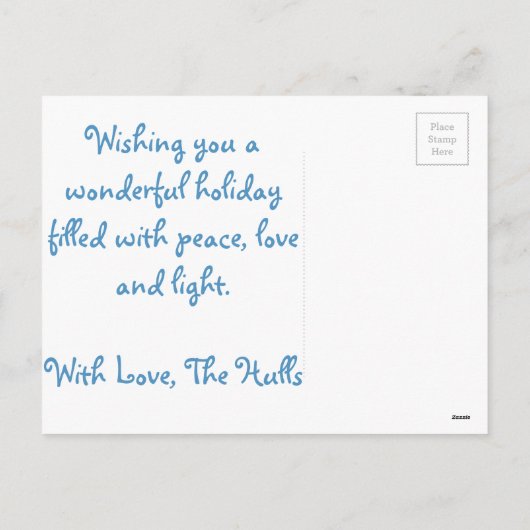 Wishing you a
wonderful holiday
filled with peace, love
and light.
With Love, The Hulls
Place
Stamp
Here
Zazzle